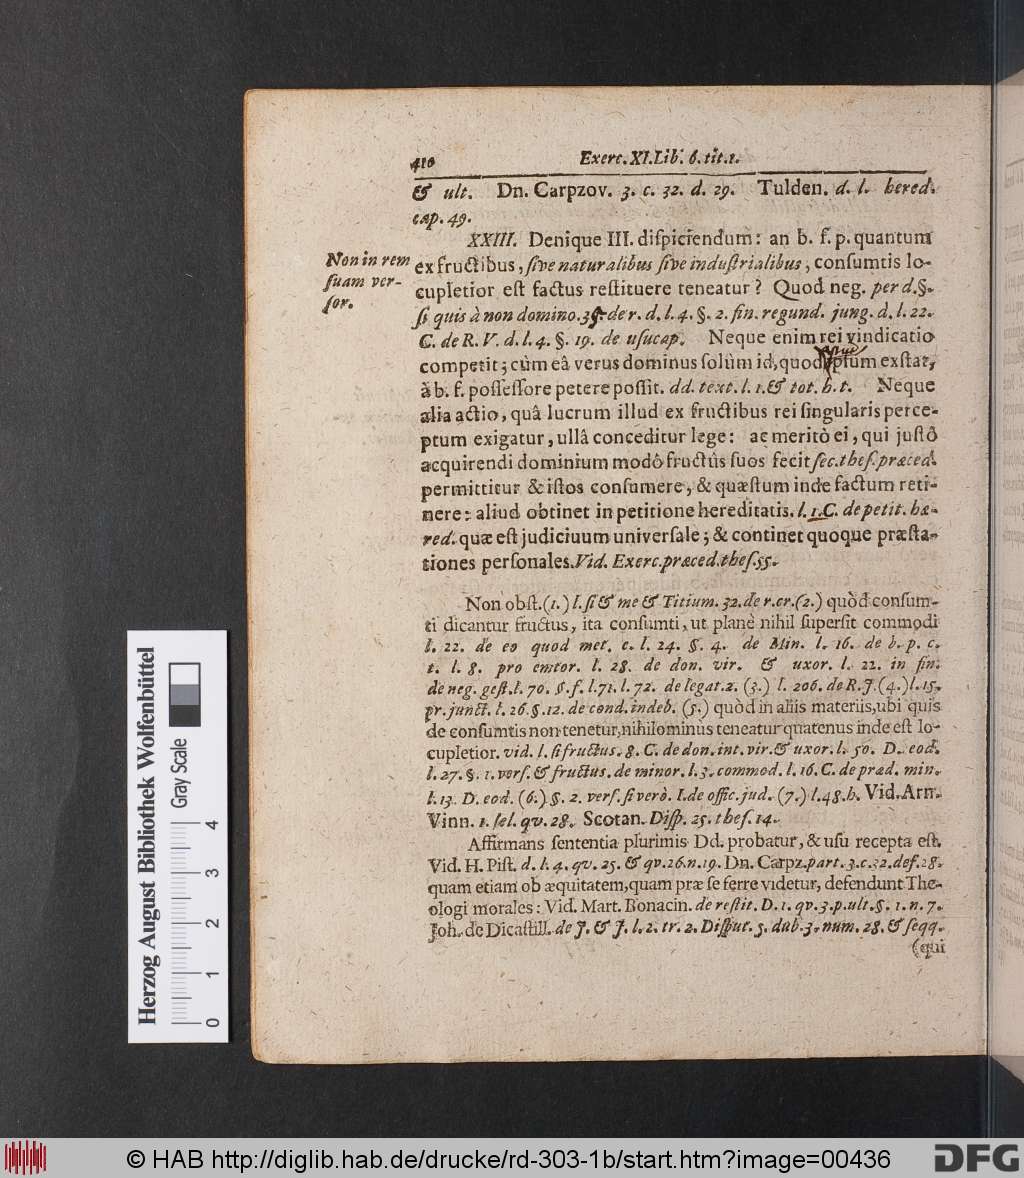 410 Exerc. XI. Lib. 6. tit. 1.
& ult. Dn. Carpzov. 3. c. 32. d. 29. Tulden. d. l. hered.
cap. 49.
Non in rem
suam ver-
sor.
XXIII. Denique III. dispiciendum: an b. f. p. quantum
ex fructibus, sive naturalibus sive industrialibus, consumtis lo-
cupletior est factus restituere teneatur? Quod neg. per d. §.
si quis à non domino. 35. de r. d. l. 4. §. 2. fin. regund. jung. d. l. 22.
C. de R. V. d. l. 4. §. 19. de usucap. Neque enim rei vindicatio
competit; cùm eâ verus dominus solùm id, quod ipsum exstat,
à b. f. possessore petere possit. dd. text. l. 1. & tot. h. t. Neque
alia actio, quâ lucrum illud ex fructibus rei singularis perce-
ptum exigatur, ullâ conceditur lege: ac meritò ei, qui justô
acquirendi dominium modô fructûs suos fecit sec. thes. præced.
permittitur & istos consumere, & quæstum inde factum reti-
nere: aliud obtinet in petitione hereditatis. l. 1. C. de petit. hæ-
red. quæ est judiciuum universale; & continet quoque præsta-
tiones personales. Vid. Exerc. præced. thes. 55.
Non obst. (1.) l. si & me & Titium. 32. de r. cr. (2.) quòd consum-
ti dicantur fructus, ita consumti, ut planè nihil supersit commodi
l. 22. de eo quod met. c. l. 24. §. 4. de Min. l. 16. de b. p. c.
t. l. 8. pro emtor. l. 28. de don. vir. & uxor. l. 22. in fin.
de neg. gest. l. 70. §. f. l. 71. l. 72. de legat. 2. (3.) l. 206. de R. J. (4.) l. 15.
pr. junct. l. 26. §. 12. de cond. indeb. (5.) quòd in aliis materiis, ubi quis
de consumtis non tenetur, nihilominus teneatur quatenus inde est lo-
cupletior. vid. l. si fructus. 8. C. de don. int. vir. & uxor. l. 50. D. eod.
l. 27. §. 1. vers. & fructus. de minor. l. 3. commod. l. 16. C. de præd. min.
l. 13. D. eod. (6.) §. 2. vers. si verò. I. de offic. jud. (7.) l. 48. h. Vid. Arn.
Vinn. 1. sel. qv. 28. Scotan. Disp. 25. thes. 14.
Affirmans sententia plurimis Dd. probatur, & usu recepta est.
Vid. H. Pist. d. l. 4. qv. 25. & qv. 26. n. 19. Dn. Carpz. part. 3. c. 32. def. 28.
quam etiam ob æquitatem, quam præ se ferre videtur, defendunt The-
ologi morales: Vid. Mart. Bonacin. de restit. D. 1. qv. 3. p. ult. §. 1. n. 7.
Joh. de Dicastill. de J. & J. l. 2. tr. 2. Disput. 5. dub. 3. num. 28. & seqq.
(qui
Herzog August Bibliothek Wolfenbüttel
Gray Scale
0 1 2 3 4
© HAB http://diglib.hab.de/drucke/rd-303-1b/start.htm?image=00436
DFG